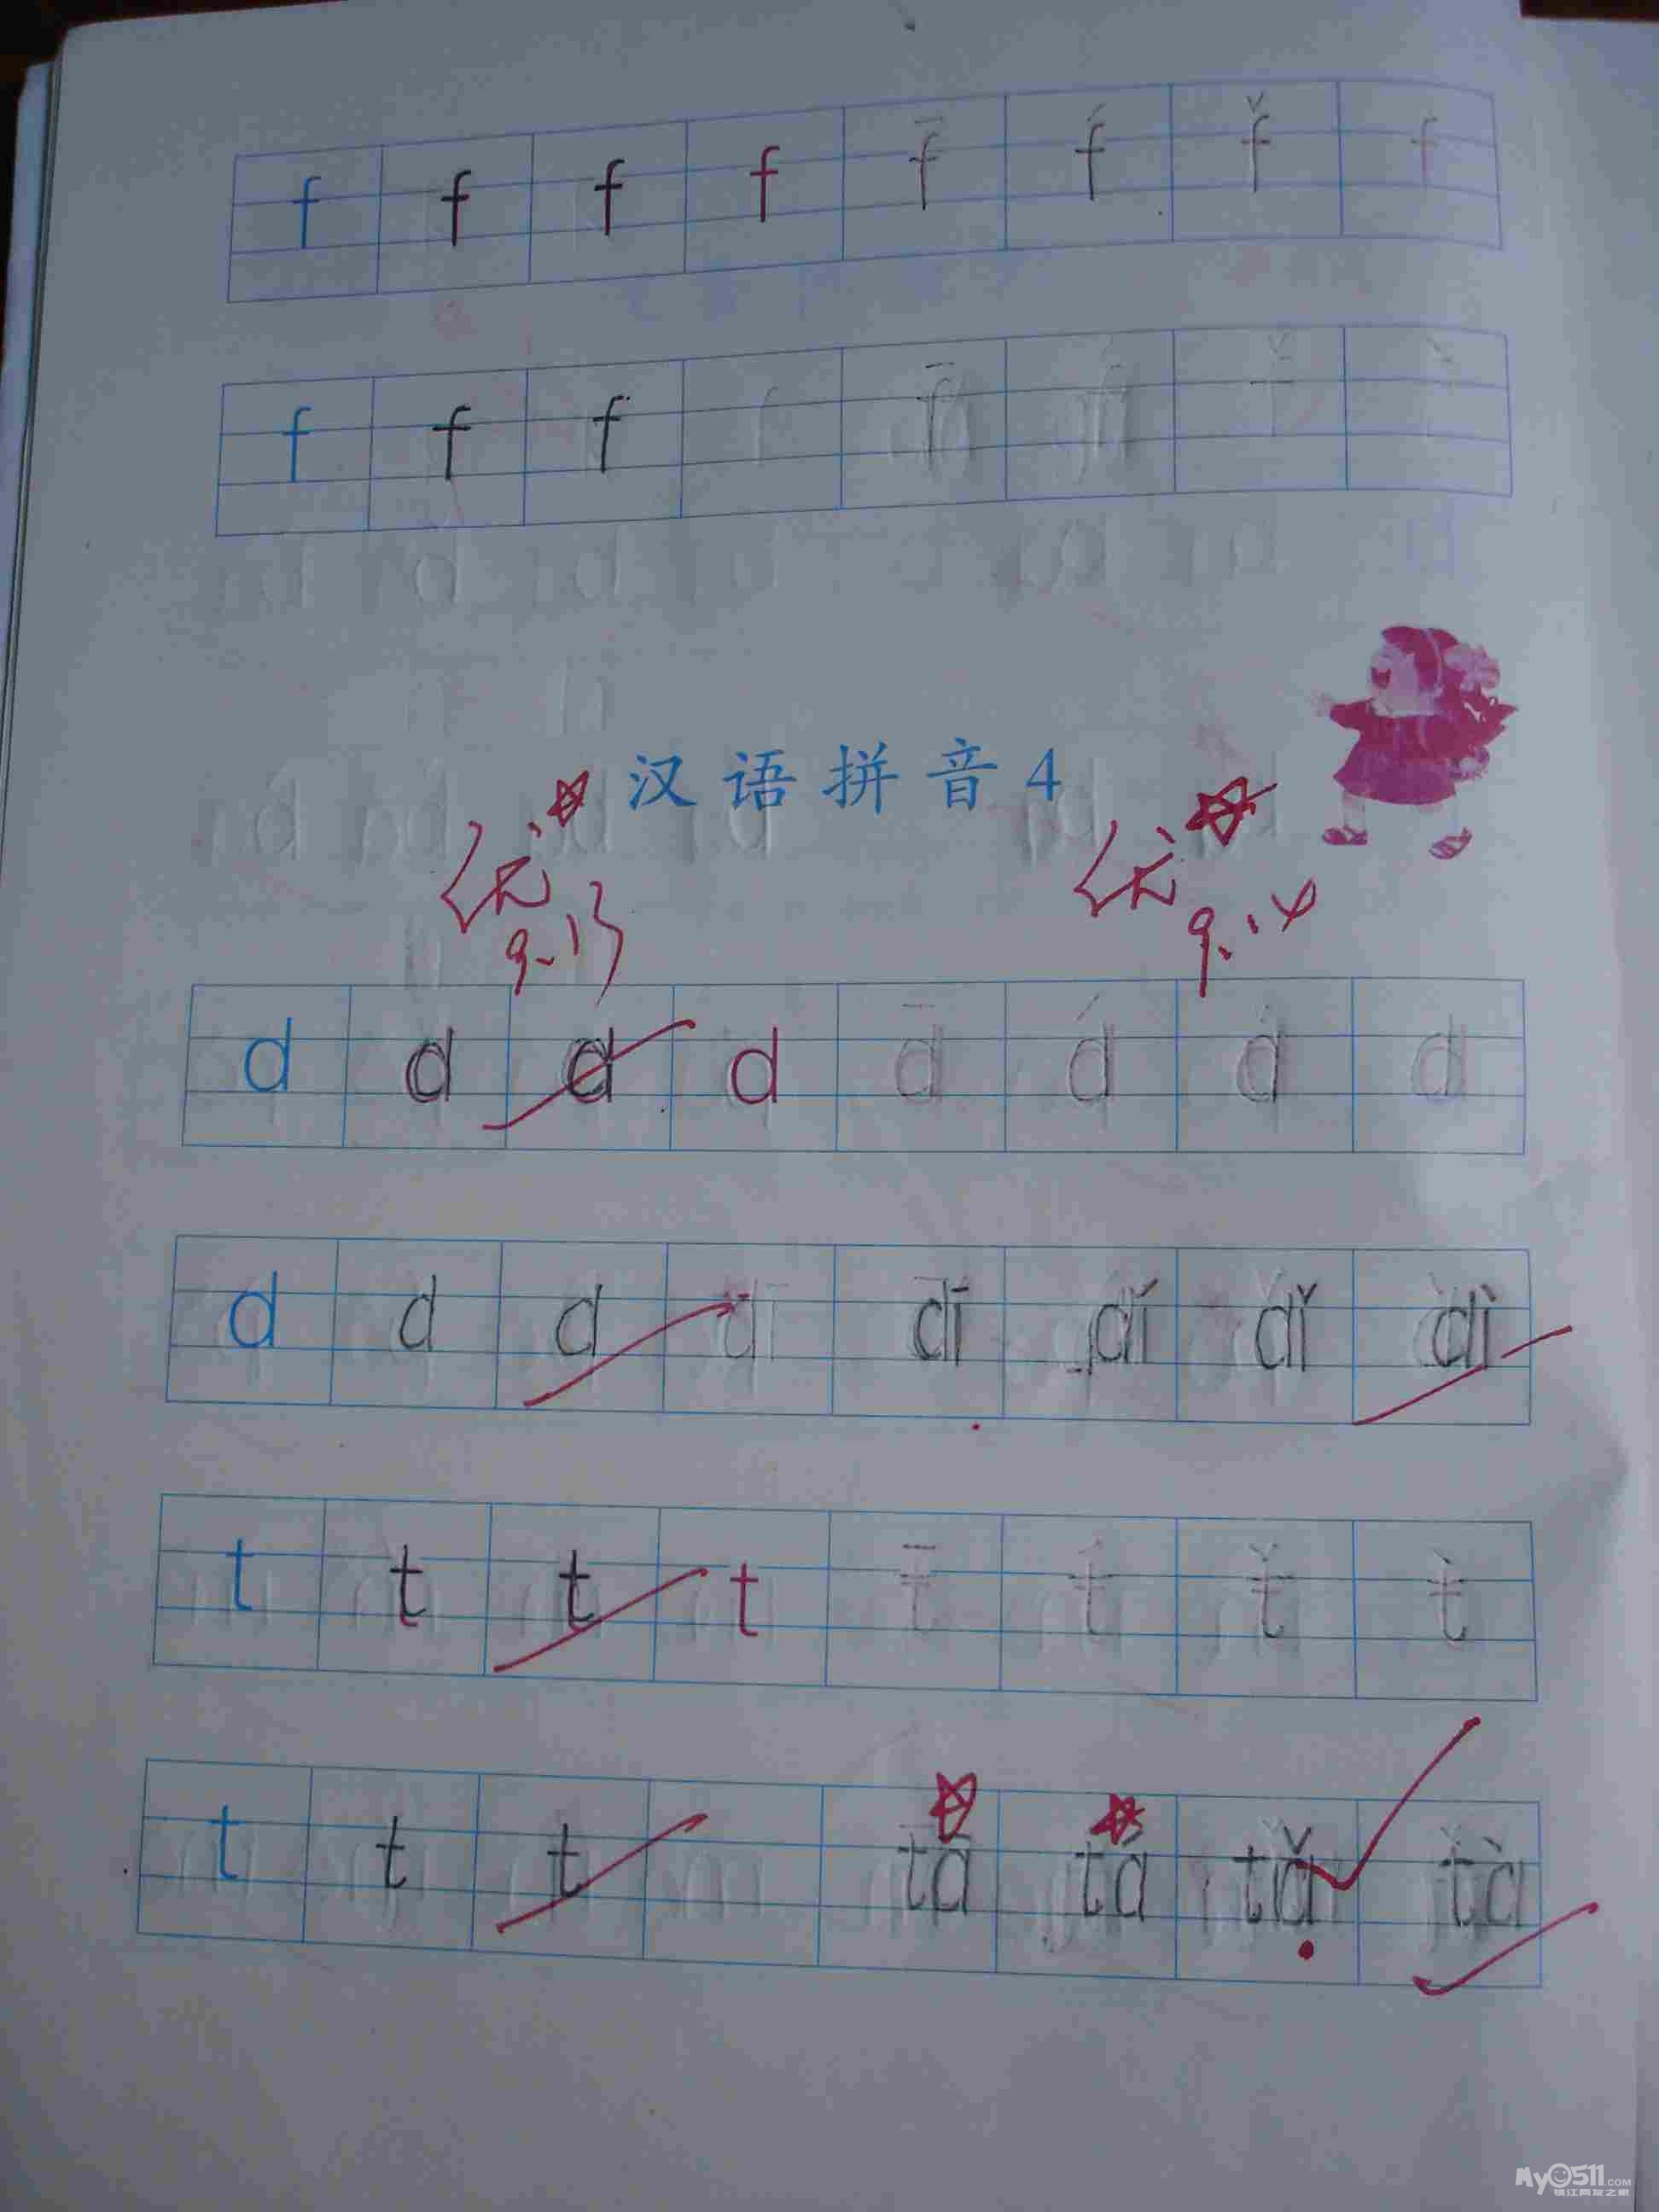 f f f f f̄ f́ f̌ f
f f f
汉语拼音4
优 优
9.13 9.14
d d d d d̄ d́ d d
d d d dī dí dǐ dì
t t t t t̄ t́ ť t̀
t t t tā tá tǎ tà
My0511.COM
镇江网友之家